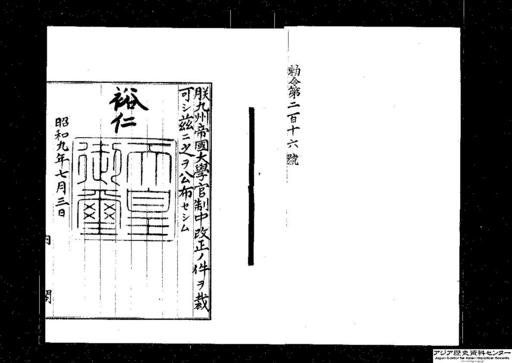 勅令第二百十六號
朕九州帝國大學官制中改正ノ件ヲ裁
可シ茲ニ之ヲ公布セシム
裕仁
天皇
御璽
昭和九年七月三日
内閣
アジア歴史資料センター
Japan Center for Asian Historical Records